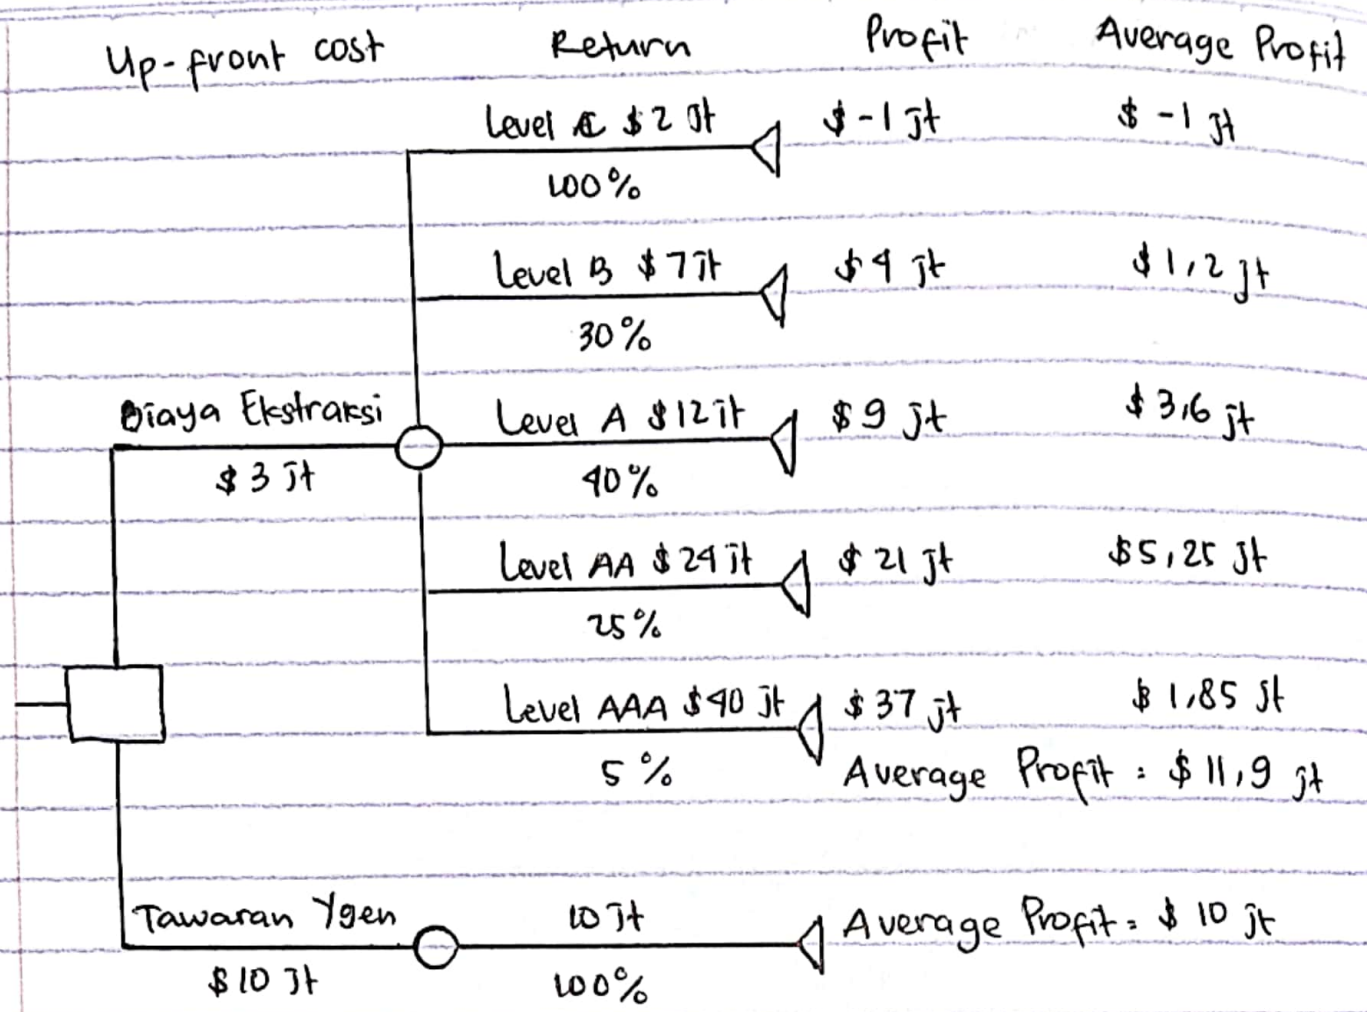 Up-front cost Return Profit Average Profit
Level C $ 2 Jt $ -1 jt $ -1 jt
100%
Level B $ 7 jt $ 4 jt $ 1,2 jt
30%
Biaya Ekstraksi Level A $ 12 jt $ 9 jt $ 3,6 jt
$ 3 Jt 40%
Level AA $ 24 jt $ 21 jt $ 5,25 Jt
25%
Level AAA $ 40 jt $ 37 jt $ 1,85 Jt
5 % Average Profit : $ 11,9 jt
Tawaran Ygen 10 Jt Average Profit = $ 10 jt
$ 10 Jt 100%